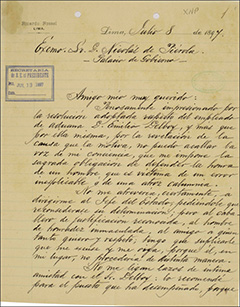 RICARDO PALMA
LIMA
Lima, Julio 8 de 1897.
Exmo. Sr. D. Nicolás de Piérola
Palacio de Gobierno
SECRETARIA
DE S. E. EL PRESIDENTE
JUL 13 1897
Amigo mío muy querido:
Penosamente impresionado por
la revolución adoptada respeto del empleado
de aduana D. Emilio Pelloy, y mas que
por ella misma, por la revelación de la
causa que la motiva, no puedo acallar la
voz de mi conciencia, que me impone la
sagrada obligación de defender la honra
de un hombre que es víctima de un error
inesplicable y de una atroz calumnia.
No me atrevería, ciertamente, a
dirigirme al Jefe del Estado, pidiéndole que
reconsiderase su determinación; pero al caba-
llero de justificación acrisolada, al hombre
de honradez inmaculada, al amigo a quien
tanto quiero y respeto, tengo que suplicarle
que me escuse y me oiga, porque él, en
mi lugar, no procedería de distinta manera.
No me ligan lazos de íntima
amistad con el Sr. Pelloy; lo recomendé
para el puesto que ha desempeñado, porque